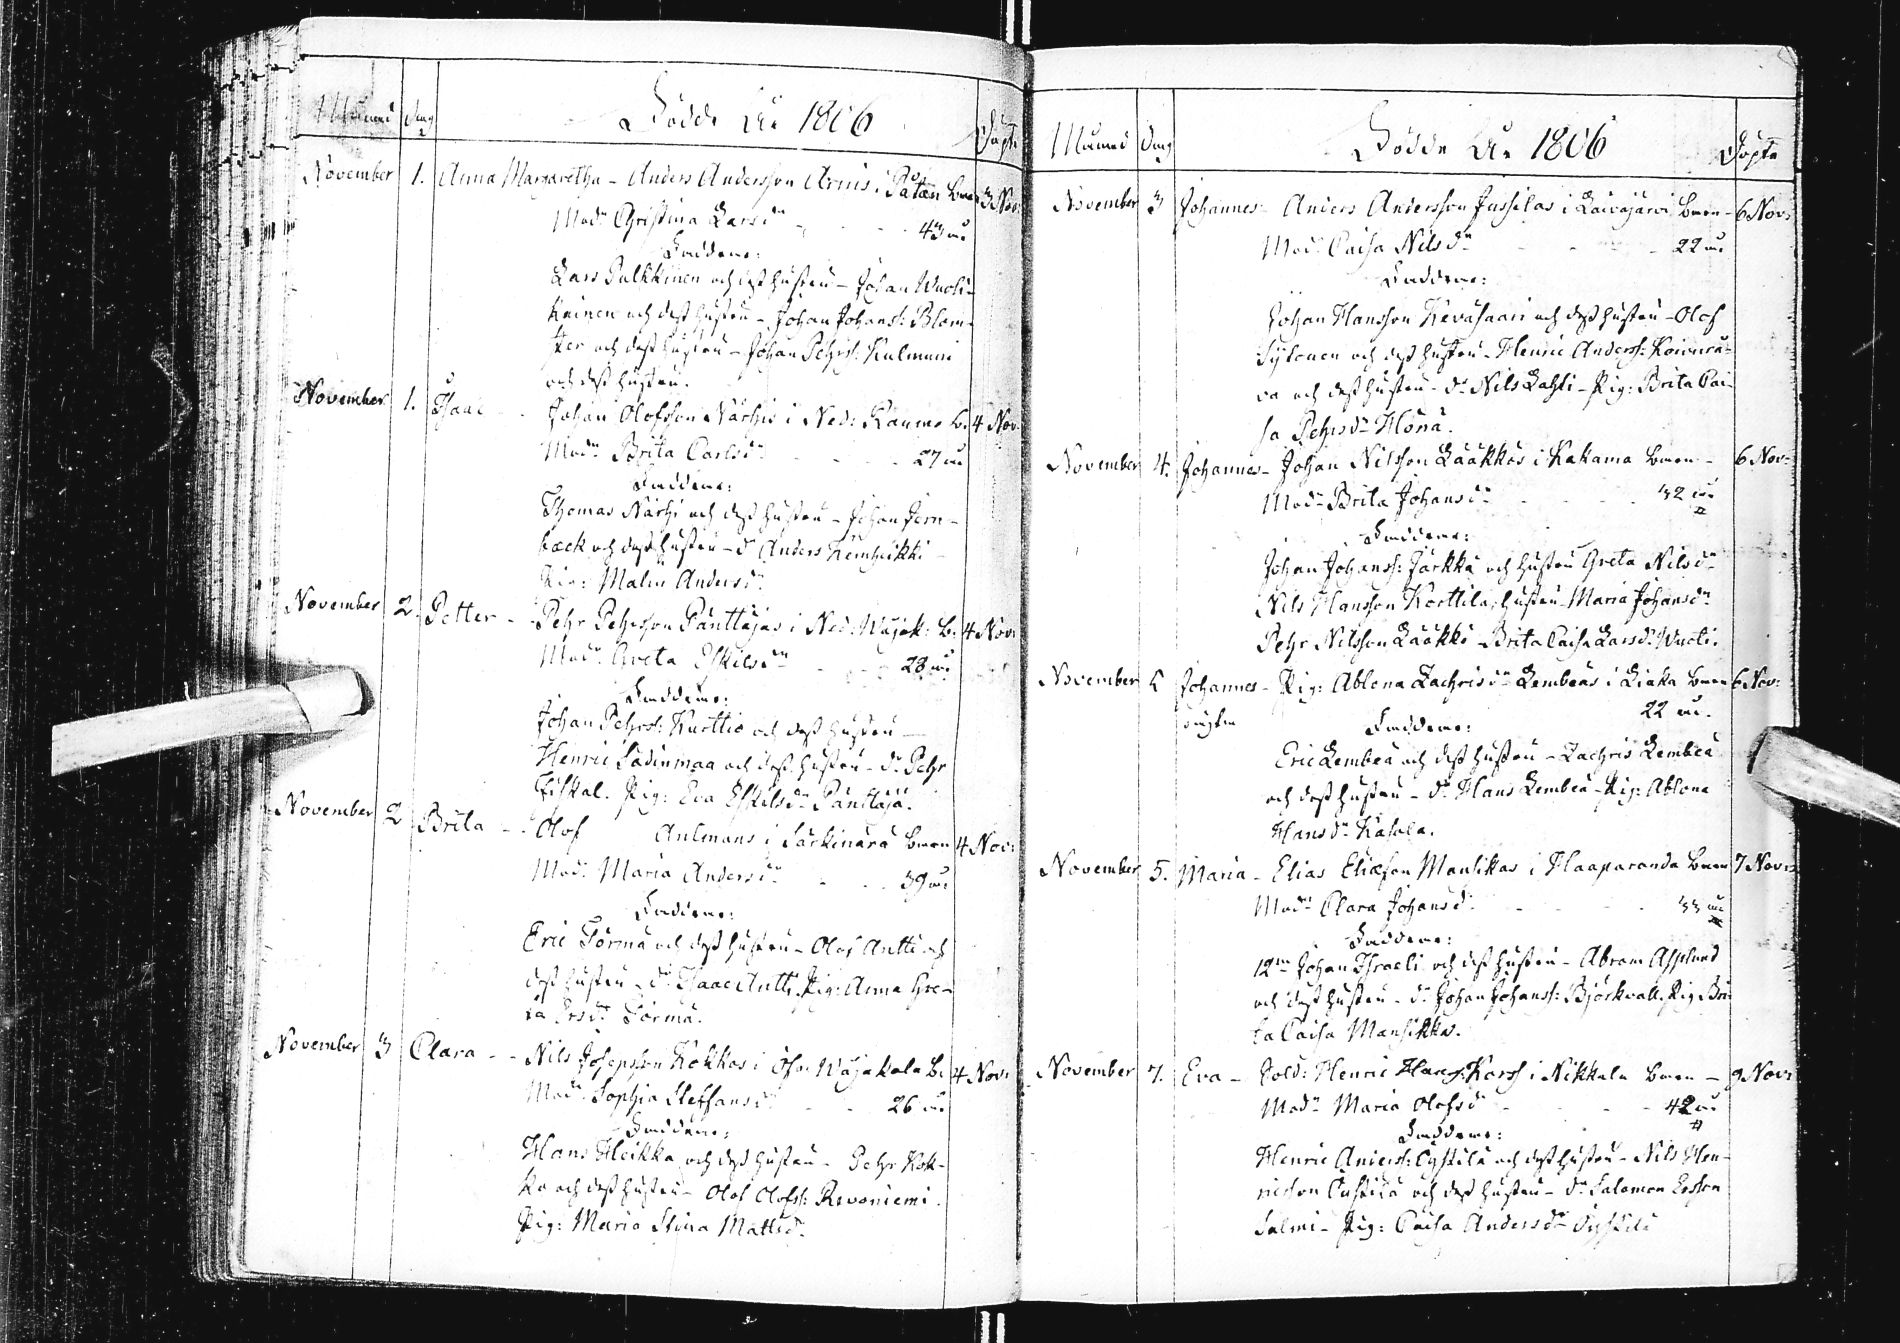 Månad Dag Födde År 1806 Döpte
November 1. Anna Margaretha - Anders Andersson Arnis i Påtan bmen 3 Nov:
Modn Christina Larsdn - - - 43 år
Faddene:
Lars Palkkinen och dess hustru - Johan Wuoli-
kainen och dess hustru - Johan Johanss: Blom-
ster och dess hustru - Johan Pehrss: Kulmuni
och dess hustru.
November 1. Isaac - - Johan Olofsson Närhis i Ned: Raumo b. 4 Nov:
Modn Brita Carlsdn - - - 27 år
Faddene:
Thomas Närhi och dess hustru - Johan Jern-
back och dess hustru - dn Anders Kemheikki -
Pig: Malin Andersdn
November 2. Petter - - Pehr Pehrsson Panttajas i Ned: Wojak: b. 4 Nov:
Modn Greta Eskilsdn - - - 28 år
Faddene:
Johan Pehrss: Kurttio och dess hustru -
Henric Sådinmaa och dess hustru - dn Pehr
Fiskal. Pig: Eva Eskilsdn Panttaja.
November 2 Brita - - Olof Aulmans i Särkinärä bmen 4 Nov:
Modn Maria Andersdn - - - 39 år
Faddene:
Eric Törmä och dess hustru - Olof Antti och
dess hustru - dn Isaac Antti. Pig: Anna Gre-
ta Ersdn Törmä.
November 3 Clara - - Nils Josepsson Kokkos i Öfr: Wojakala b. 4 Nov:
Modn Sophia Steffansdn - - 26 år
Faddene:
Hans Heikka och dess hustru - Pehr Kok-
ko och dess hustru - Olof Olofss: Revoniemi.
Pig: Maria Stina Mattsdn
Månad Dag Födde År 1806 Döpte
November 3 Johannes - Anders Andersson Jussilas i Laivajärvi bmen - 6 Nov:
Modn Caisa Nilsdn - - - 22 år
Faddene:
Johan Hansson Kevasaari och dess hustru - Olof
Sylonen och dess hustru - Henric Anderss: Koivura-
va och dess hustru - dn Nils Lahti - Pig: Brita Cai-
sa Pehrsdn Hona.
November 4. Johannes - Johan Nilsson Lääkkös i Kakama bmen - 6 Nov:
Modn Brita Johansdn - - - 32 år
Faddene:
Johan Johanss: Jarkka och hustru Greta Nilsdn
Nils Hansson Korttila, hustru Maria Johansdn
Pehr Nilsson Lääkkö - Brita Caisa Larsdn Wuoti.
November 5 Johannes - Pig: Ablona Zachrisdn Lembeäs i Liaka bmen 6 Nov:
oägta 22 år.
Faddene:
Eric Lembeä och dess hustru - Zachris Lembeä
och dess hustru - dn Hans Lembeä - Pig: Ablona
Hansdn Kasala.
November 5. Maria - Elias Eliæson Mansikkas i Haaparanda bmen 7 Nov:
Modn Clara Johansdn - - - 33 år
Faddene:
12mn Johan Israeli och dess hustru - Abram Asplund
och dess hustru - dn Johan Johanss: Björkvall. Pig Bri-
ta Caisa Mansikka.
November 7. Eva - Sold: Henric Korss i Nikkala bmen - 9 Nov:
Modn Maria Olofsdn - - - 42 år
Faddene:
Henric Anderss: Cyskilä och dess hustru - Nils Hen-
ricsson och dess hustru - dn Salomon Ersson
Salmi - Pig: Caisa Andersdn